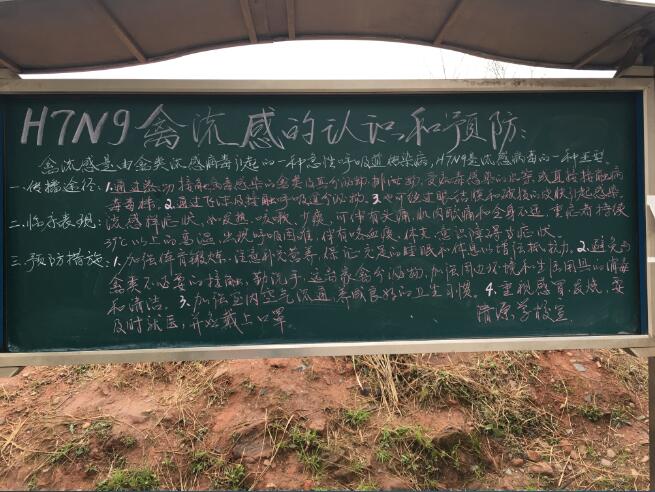 H7N9禽流感的认识和预防:
禽流感是由禽类流感病毒引起的一种急性呼吸道传染病,H7N9是流感病毒的一种亚型。
一.传播途径:1.通过密切接触病毒感染的禽类及其分泌物排泄物,受病毒感染的水或直接接触病
毒毒株。2.通过飞沫及接触呼吸道分泌物。3.也可经过眼结膜和破损的皮肤引起感染
二.临床表现:流感样症状,如发热,咳嗽,少痰,可伴有头痛,肌肉酸痛和全身不适,重症者持续
39℃以上的高温,出现呼吸困难,伴有咳血痰,休克,意识障碍等症状。
三.预防措施:1.加强体育锻炼,注意补充营养,保证充足的睡眠和休息以增强抵抗力。2.避免与
禽类不必要的接触,勤洗手,远离禽分泌物,加强周边环境和生活用具的消毒
和清洁。3.加强室内空气流通,养成良好的卫生习惯。4.重视感冒发烧,要
及时就医,并应戴上口罩。
蒲源学校宣